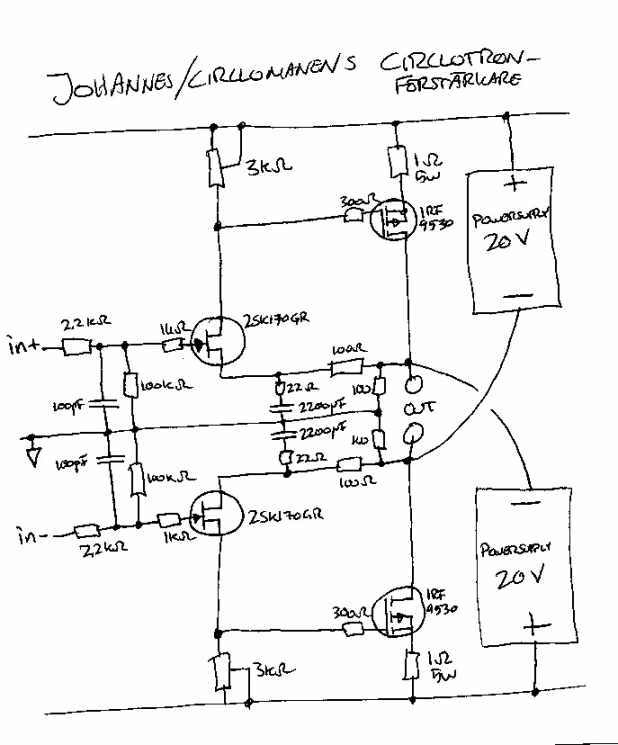 JOHANNES/CIRCLOMANENS CIRCLOTRON-
FÖRSTÄRKARE
3kΩ
1Ω
5W
300Ω
IRF
9530
+
POWERSUPPLY
20V
−
2SK170GR
2,2kΩ
1kΩ
in+
100Ω
100kΩ
22Ω
100
100pF
2200pF
OUT
2200pF
100pF
22Ω
100kΩ
100Ω
in-
2,2kΩ
1kΩ
2SK170GR
−
POWERSUPPLY
20V
+
300Ω
IRF
9530
3kΩ
1Ω
5W